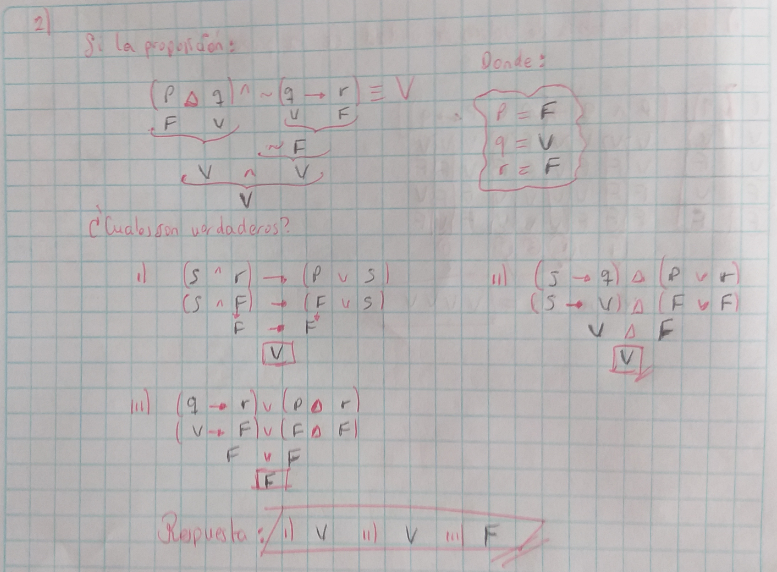 2)
Si la proposición:
Donde:
(P Δ q) ^ ~(q → r) ≡ V
F V V F
~ F
V ^ V
V
P = F
q = V
r = F
¿Cuales son verdaderos?
i) (S ^ r) → (P v S)
(S ^ F) → (F v S)
F → F
V
ii) (S → q) Δ (P v r)
(S → V) Δ (F v F)
V Δ F
V
iii) (q → r) v (P Δ r)
(V → F) v (F Δ F)
F v F
F
Respuesta: i) V ii) V iii) F